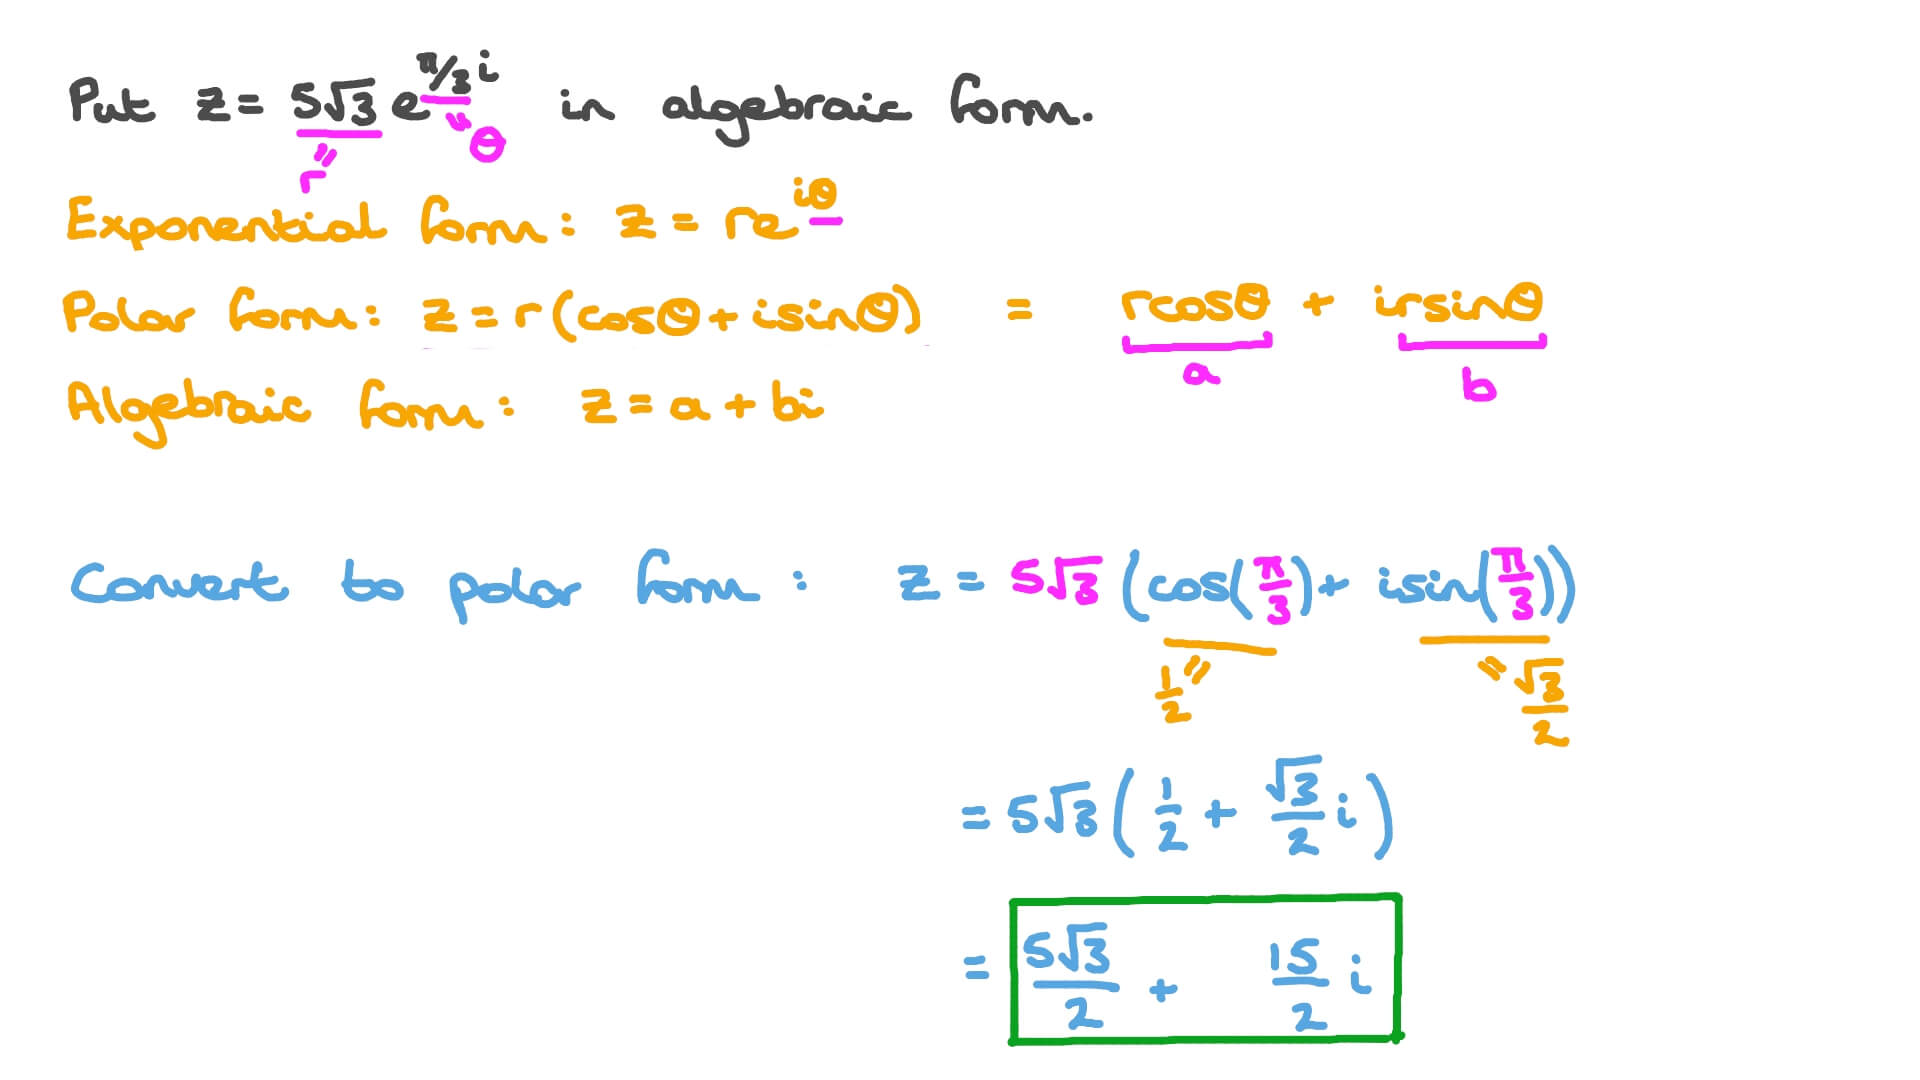 Put z = 5√3 e^π/3 i in algebraic form.
r = θ
Exponential form: z = re^iθ
Polar form: z = r(cosθ + isinθ) = rcosθ + irsinθ
a b
Algebraic form: z = a + bi
Convert to polar form: z = 5√3 (cos(π/3) + isin(π/3))
1/2 = = √3/2
= 5√3 (1/2 + √3/2 i)
= 5√3/2 + 15/2 i